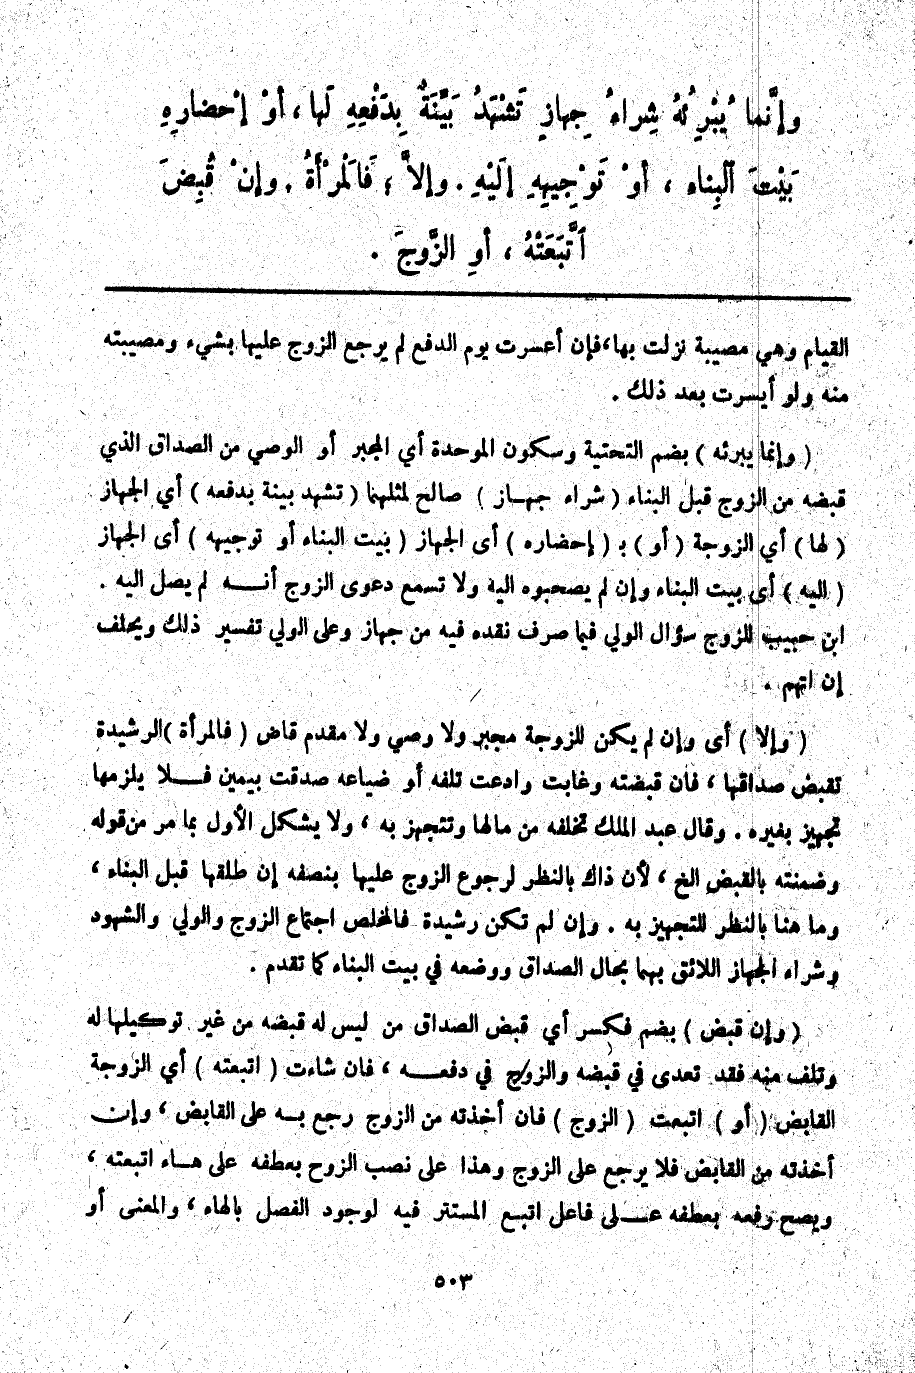 وإنَّما يُبْرِئُهُ شِراءُ جِهازٍ تَشْهَدُ بَيِّنَةٌ بِدَفْعِهِ لَها ، أوْ إحْضارِهِ
بَيْتَ ٱلْبِناءِ ، أوْ تَوْجِيهِهِ إلَيْهِ . وإلاَّ ؛ فَالْمَرْأَةُ . وإنْ قُبِضَ
ٱتَّبَعَتْهُ ، أوِ الزَّوْجَ .
القيام وهي مصيبة نزلت بها ، فإن أعسرت يوم الدفع لم يرجع الزوج عليها بشيء ومصيبته
منه ولو أيسرت بعد ذلك .
( وإنما يبرئه ) بضم التحتية وسكون الموحدة أي المجبر أو الوصي من الصداق الذي
قبضه من الزوج قبل البناء ( شراء جهـاز ) صالح لمثلهما ( تشهد بينة بدفعه ) أي الجهاز
( لها ) أي الزوجة ( أو ) بـ ( إحضاره ) أى الجهاز ( بيت البناء أو توجيهه ) أى الجهاز
( اليه ) أى بيت البناء وإن لم يصحبوه اليه ولا تسمع دعوى الزوج أنـــه لم يصل اليه .
ابن حبيب للزوج سؤال الولي فيما صرف نقده فيه من جهاز وعلى الولي تفسير ذلك ويحلف
إن اتهم .
( وإلا ) أى وإن لم يكن للزوجة مجبر ولا وصي ولا مقدم قاض ( فالمرأة )الرشيدة
تقبض صداقها ، فان قبضته وغابت وادعت تلفه أو ضياعه صدقت بيمين فـــلا يلزمها
تجهيز بغيره . وقال عبد الملك تخلفه من مالها وتتجهز به ، ولا يشكل الأول بما مر من قوله
وضمنته بالقبض الخ ، لأن ذاك بالنظر لرجوع الزوج عليها بنصفه إن طلقها قبل البناء ،
وما هنا بالنظر للتجهيز به . وإن لم تكن رشيدة فالمخلص اجتماع الزوج والولي والشهود
وشراء الجهاز اللائق بهما بحال الصداق ووضعه في بيت البناء كما تقدم .
( وإن قبض ) بضم فكسر أي قبض الصداق من ليس له قبضه من غير توكيلها له
وتلف منه فقد تعدى في قبضه والزوج في دفعـــه ، فان شاءت ( اتبعته ) أي الزوجة
القابض ( أو ) اتبعت ( الزوج ) فان أخذته من الزوج رجع بـــه على القابض ، وإن
أخذته من القابض فلا يرجع على الزوج وهذا على نصب الزوح بعطفه على هـاء اتبعته ،
ويصح رفعه بعطفه عـــلى فاعل اتبـع المستتر فيه لوجود الفصل بالهاء ، والمعنى أو
٥٠٣